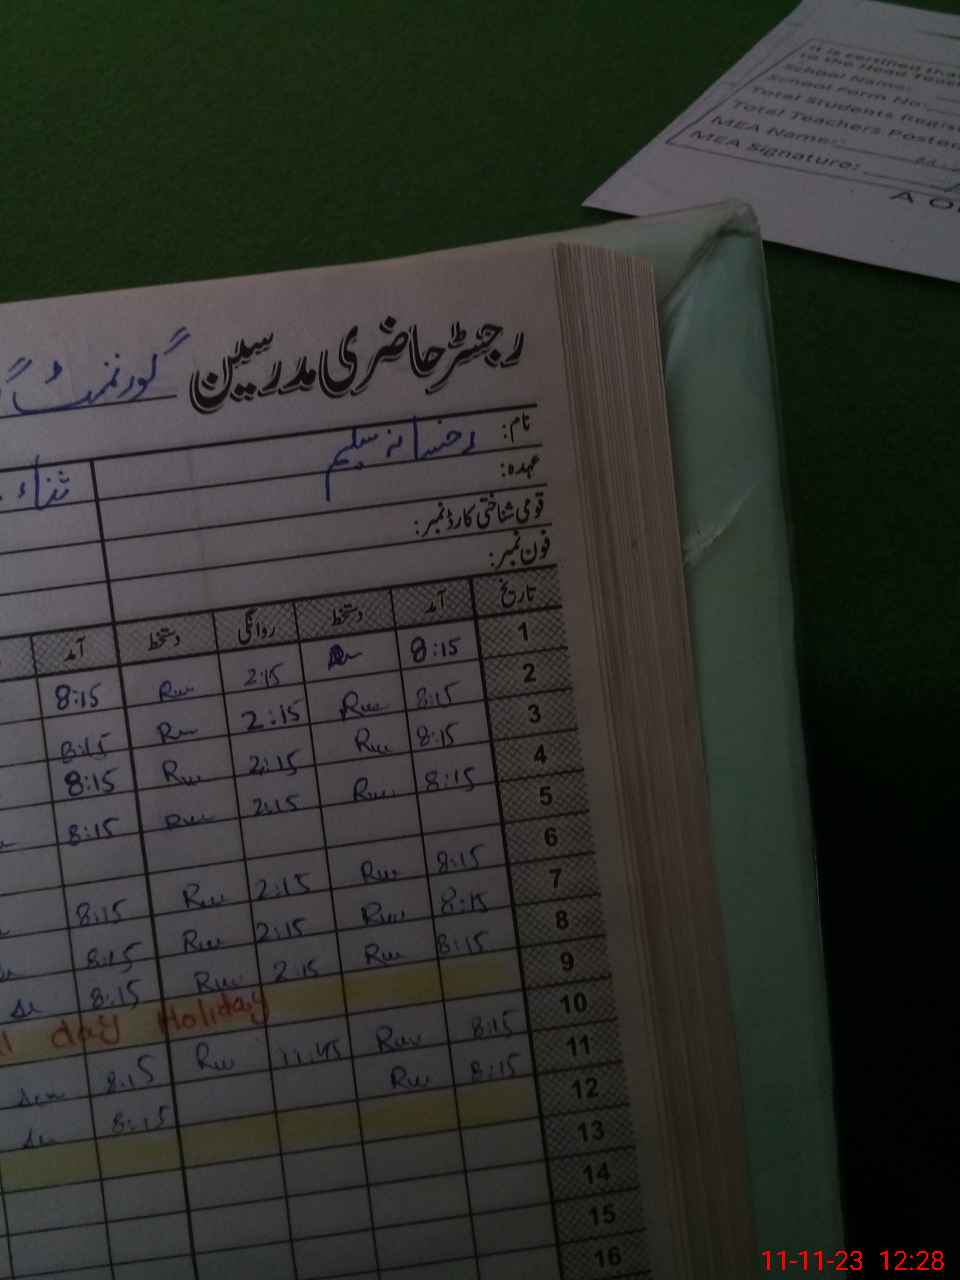 It is certified that
to the Head Teac
School Name:
School Form No:
Total Students Regist
Total Teachers Posted
MEA Name:
MEA Signature:
رجسٹر حاضری مدرسین گورنمنٹ
نام: رخسانہ سلیم ثناء
عہدہ:
قومی شناختی کارڈ نمبر:
فون نمبر:
تاریخ آمد دستخط روانگی دستخط آمد
1 8:15 2:15 Rw 8:15
2 8:15 Rw 2:15 Rw 8:15
3 8:15 Rw 2:15 Rw 8:15
4 8:15 Rw 2:15 Rw 8:15
5
6 8:15 Rw 2:15 Rw 8:15
7 8:15 Rw 2:15 Rw 8:15
8 8:15 Rw 2:15 Rw 8:15
9 day Holiday
10 8:15 Rw 11:45 Rw 8:15
11 8:15 Rw 8:15
12
13
14
15
16
11-11-23 12:28